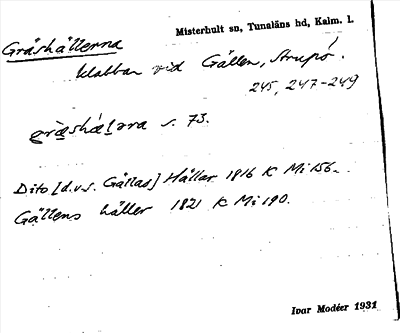 Gråshällerna
Misterhult sn, Tunaläns hd, Kalm. l.
klabbar vid Gällen, Strupö.
245, 247-249
s. 73.
Dito [d.v.s. Gållas] Hällar 1816 K Mi 156.
Gällens häller 1821 K Mi 190.
Ivar Modéer 1931